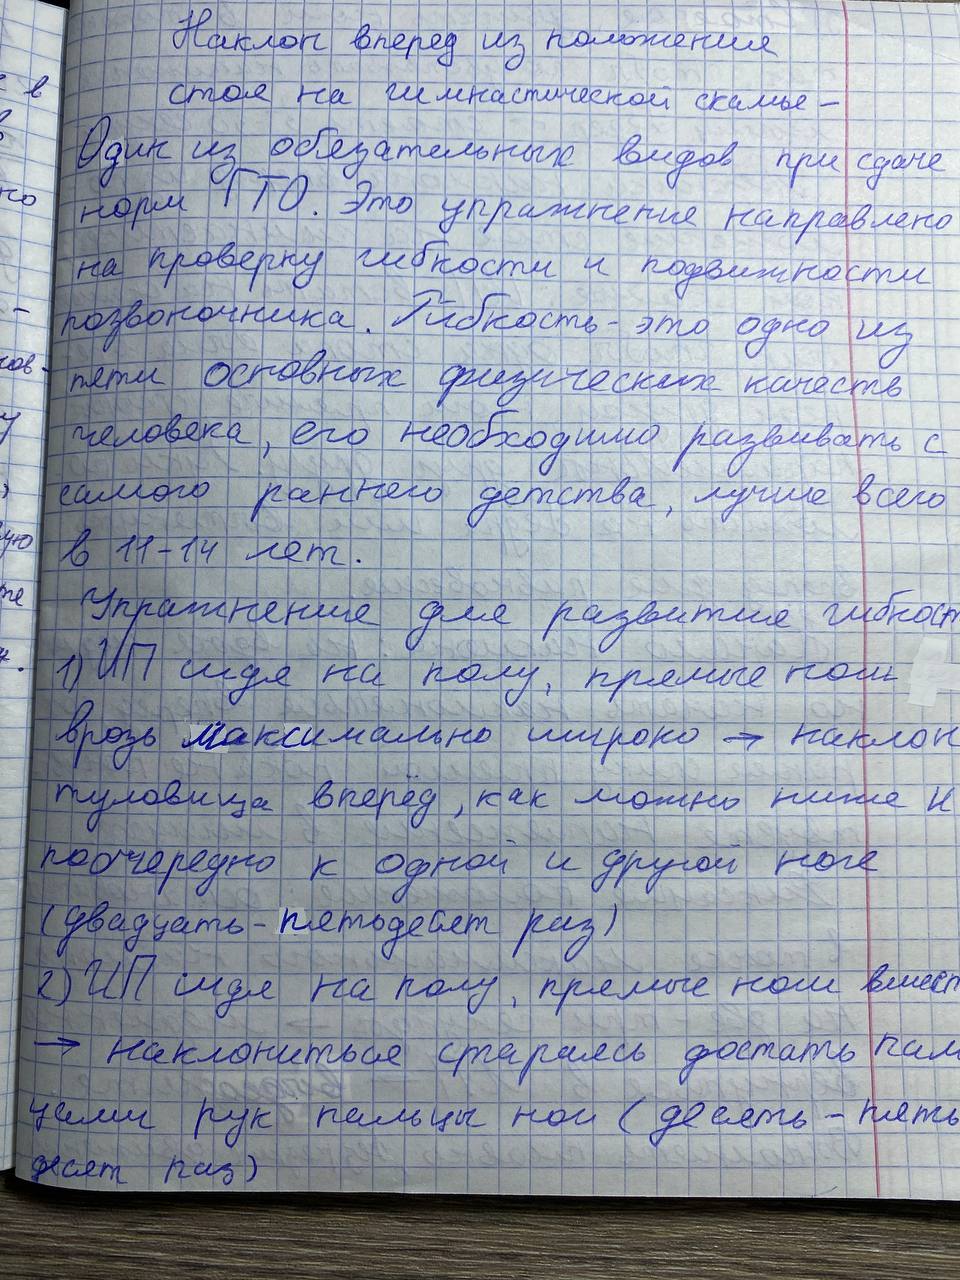 Наклон вперед из положения
стоя на гимнастической скамье –
Один из обязательных видов при сдаче
норм ГТО. Это упражнение направлено
на проверку гибкости и подвижности
позвоночника. Гибкость - это одно из
пяти основных физических качеств
человека, его необходимо развивать с
самого раннего детства, лучше всего
в 11-14 лет.
Упражнение для развития гибкост
1) ИП сидя на полу, прямые ноги
врозь максимально широко → наклон
туловища вперёд, как можно ниже и
поочередно к одной и другой ноге
(двадцать - пятьдесят раз)
2) ИП сидя на полу, прямые ноги вмест
→ наклониться стараясь достать пал
цами рук пальцы ног (десять - пять
десят раз)
в
в
но
-
ов-
у
ую
те